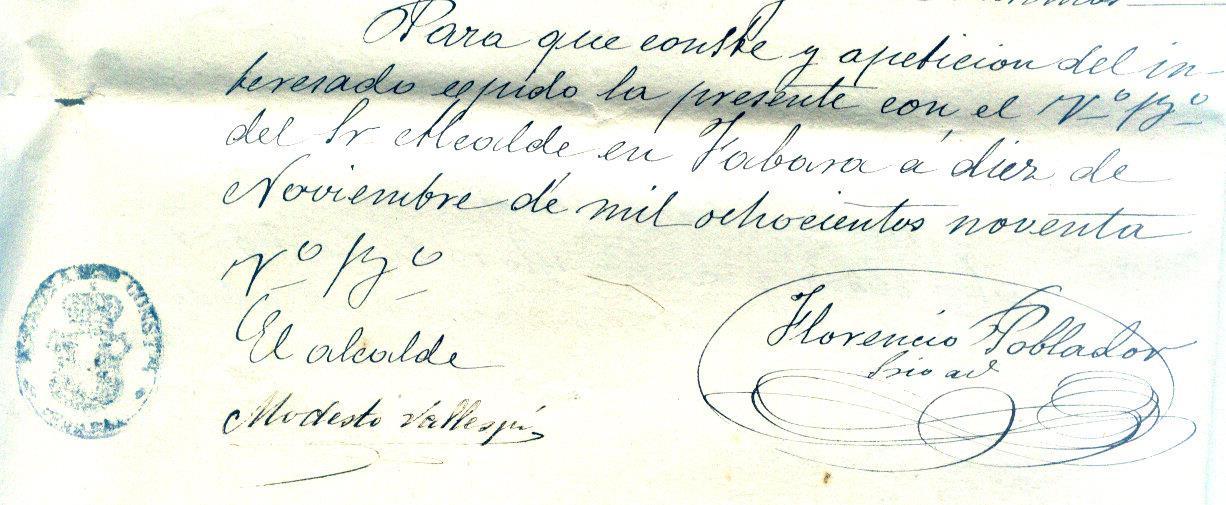 Para que conste y apeticion del in-
teresado espido la presente con el Vº Bº
del Sr Alcalde en Fabara á diez de
Noviembre de mil ochocientos noventa
Vº Bº
El alcalde
Florencio Poblador
Srio
Modesto Vallespi